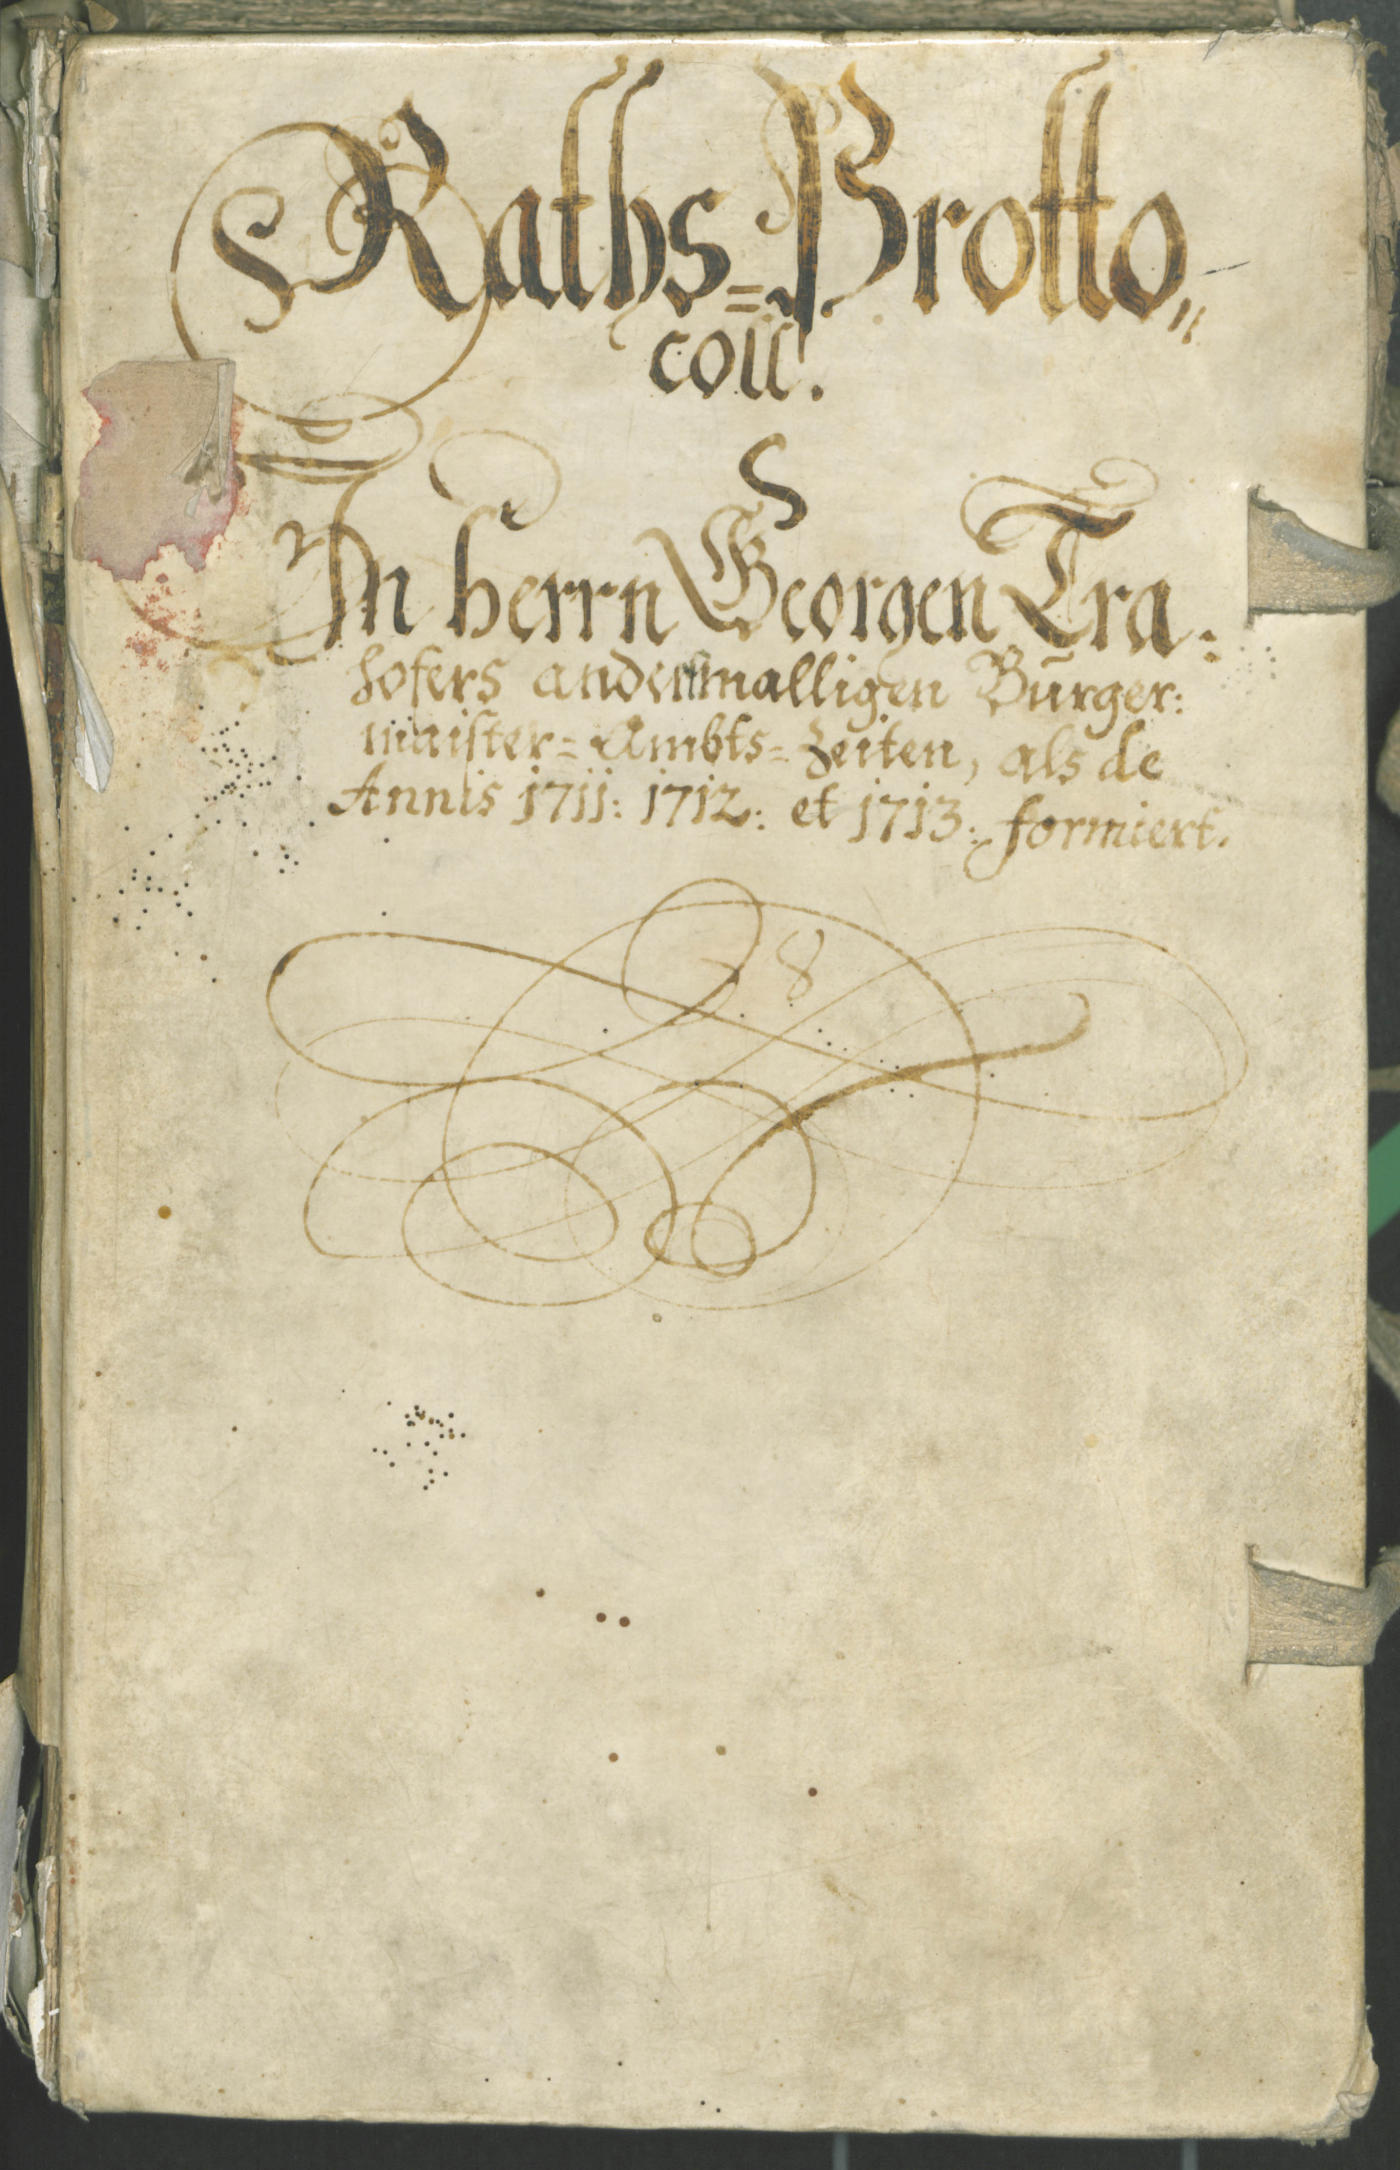 Raths=Protto„
coll.
In herrn Georgen Tra:
hofers andermalligen Burger:
maister=Ambts=Zeiten, als de
Annis 1711: 1712: et 1713: formiert.
8